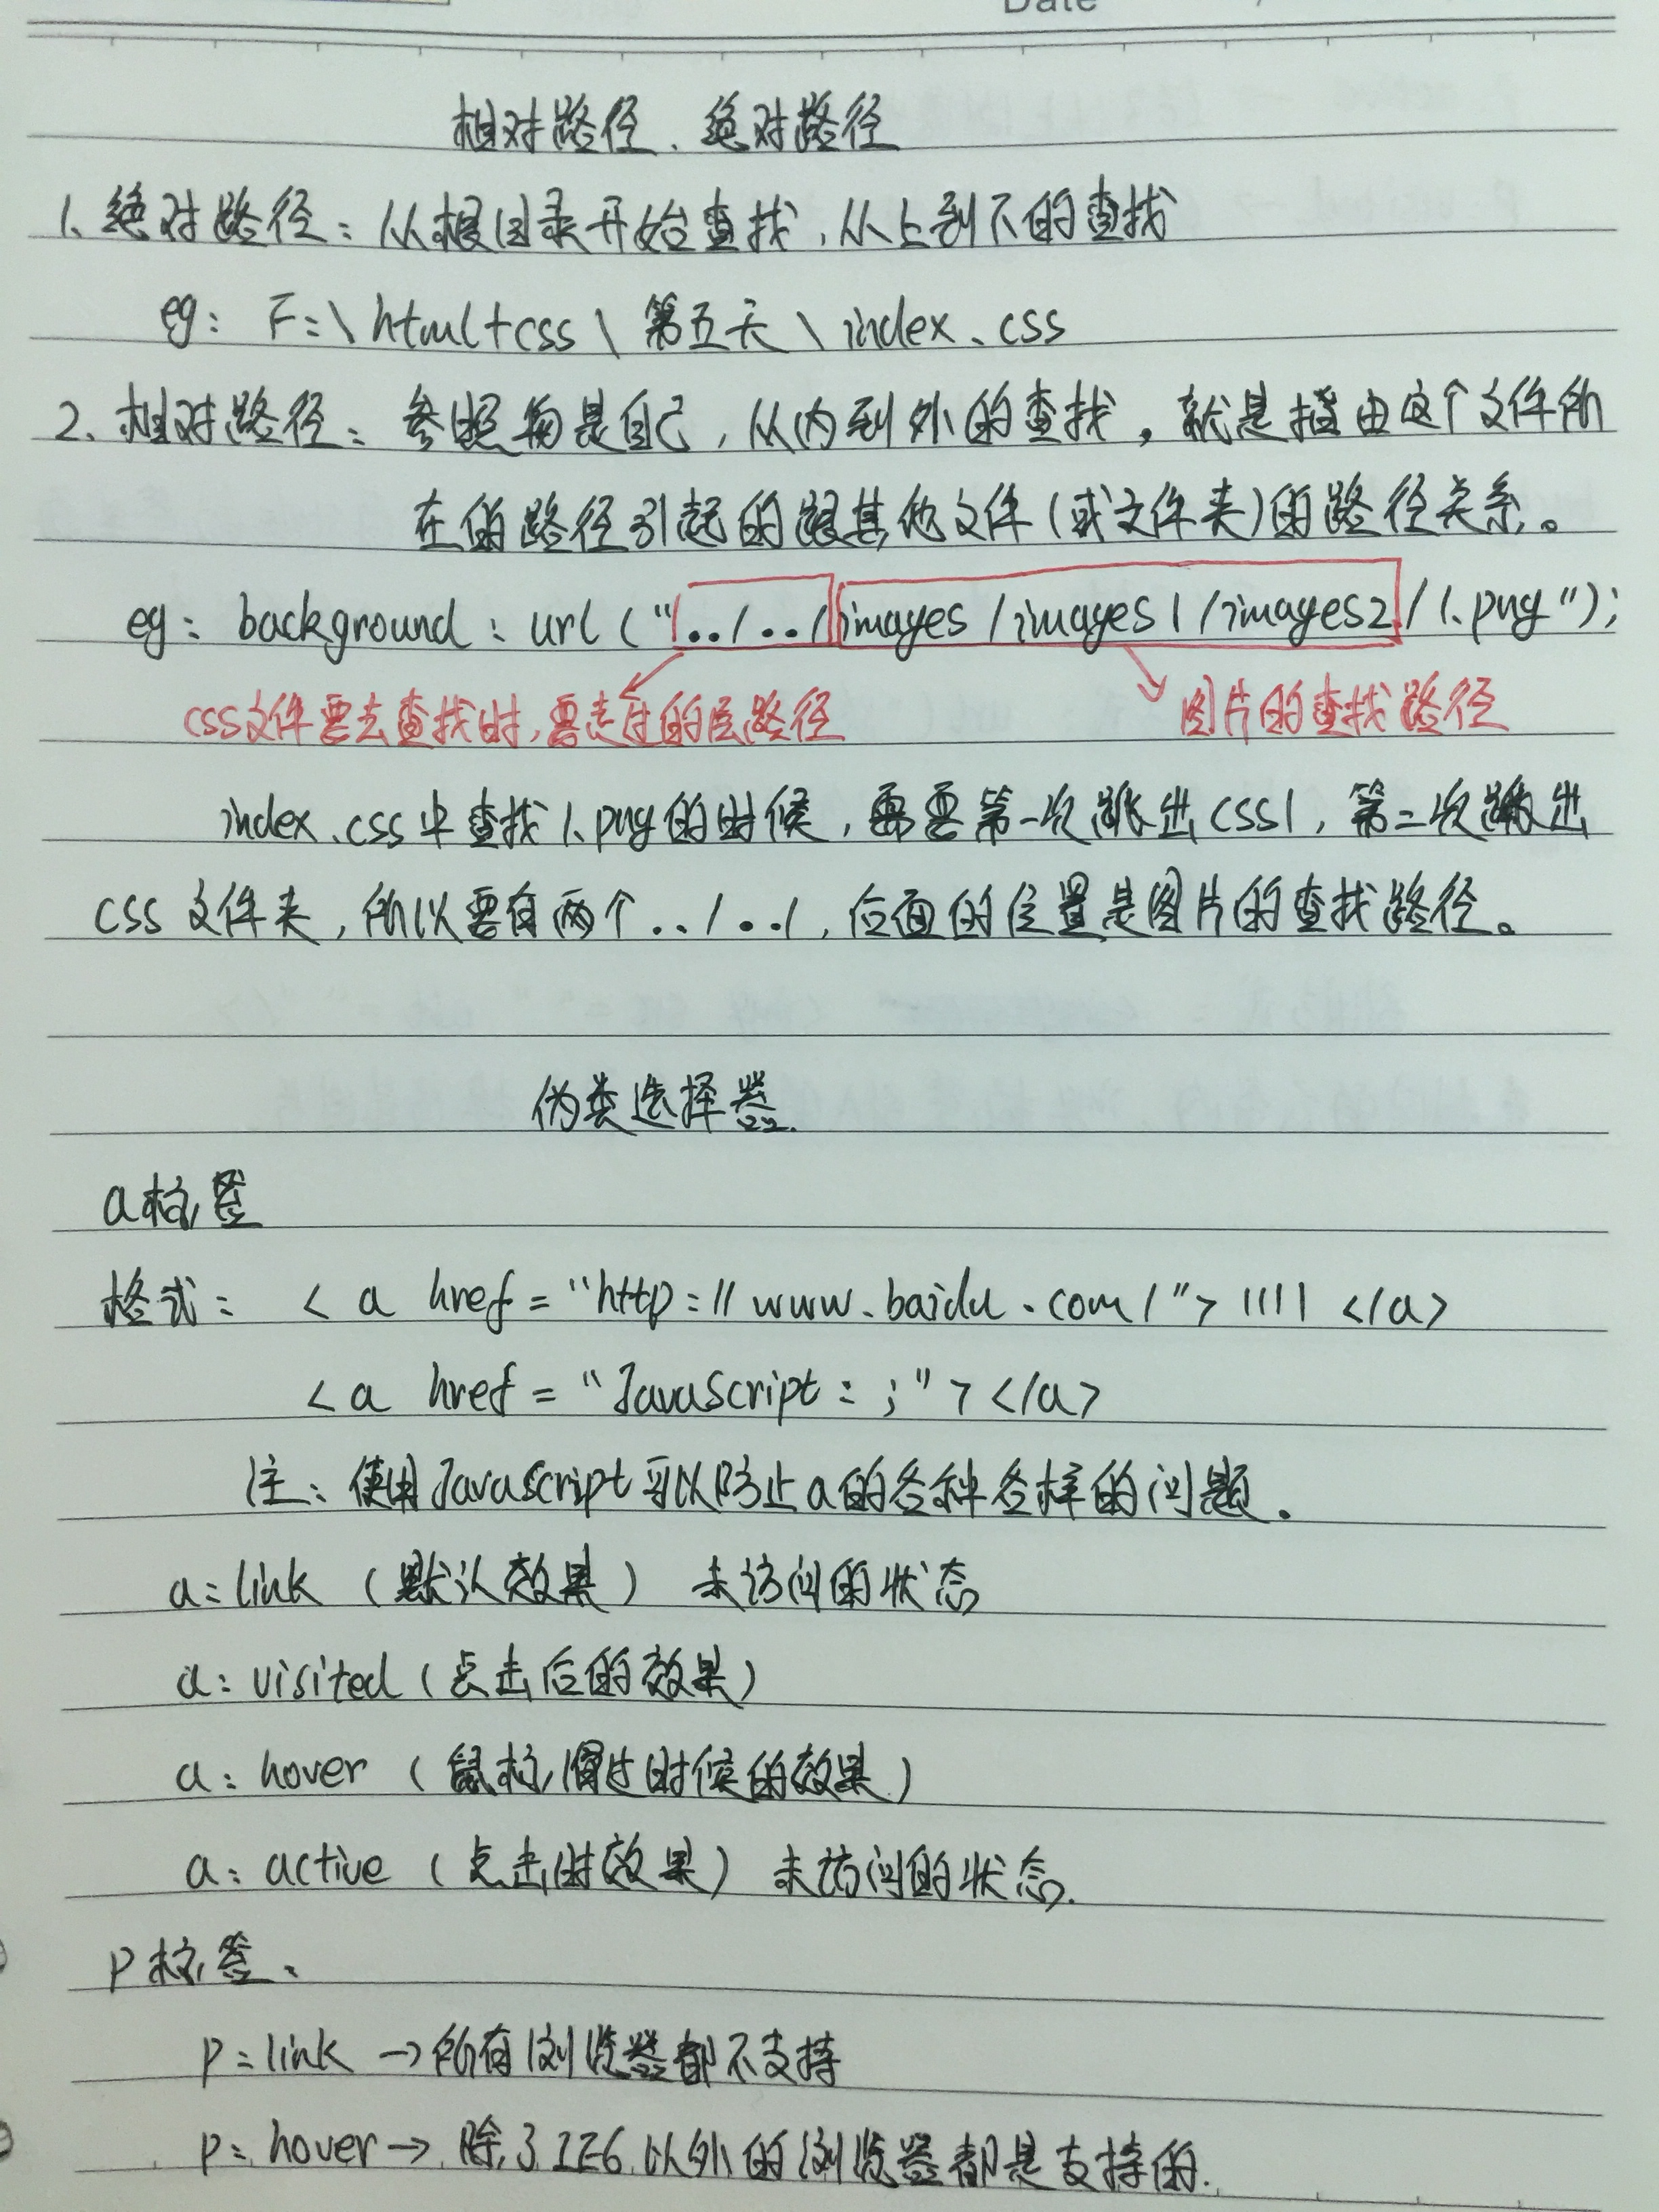 Date
相对路径、绝对路径
1、绝对路径：从根目录开始查找，从上到下的查找
eg：F:\html+css\第五天\index.css
2、相对路径：参照物是自己，从内到外的查找，就是指由这个文件所
在的路径引起的跟其他文件(或文件夹)的路径关系。
eg：background：url("../../images/images1/images2/1.png");
css文件要去查找时，要走过的层路径 图片的查找路径
index.css中查找1.png的时候，需要第一次跳出css1，第二次跳出
css文件夹，所以要有两个../../，后面的位置是图片的查找路径。
伪类选择器
a标签
格式：<a href="http://www.baidu.com/">1111</a>
<a href="JavaScript:;"></a>
注：使用JavaScript可以防止a的各种各样的问题。
a:link（默认效果）未访问的状态
a:visited（点击后的效果）
a:hover（鼠标滑过时候的效果）
a:active（点击时效果）未访问的状态.
P标签、
P:link→所有浏览器都不支持
P:hover→除了IE6以外的浏览器都是支持的.